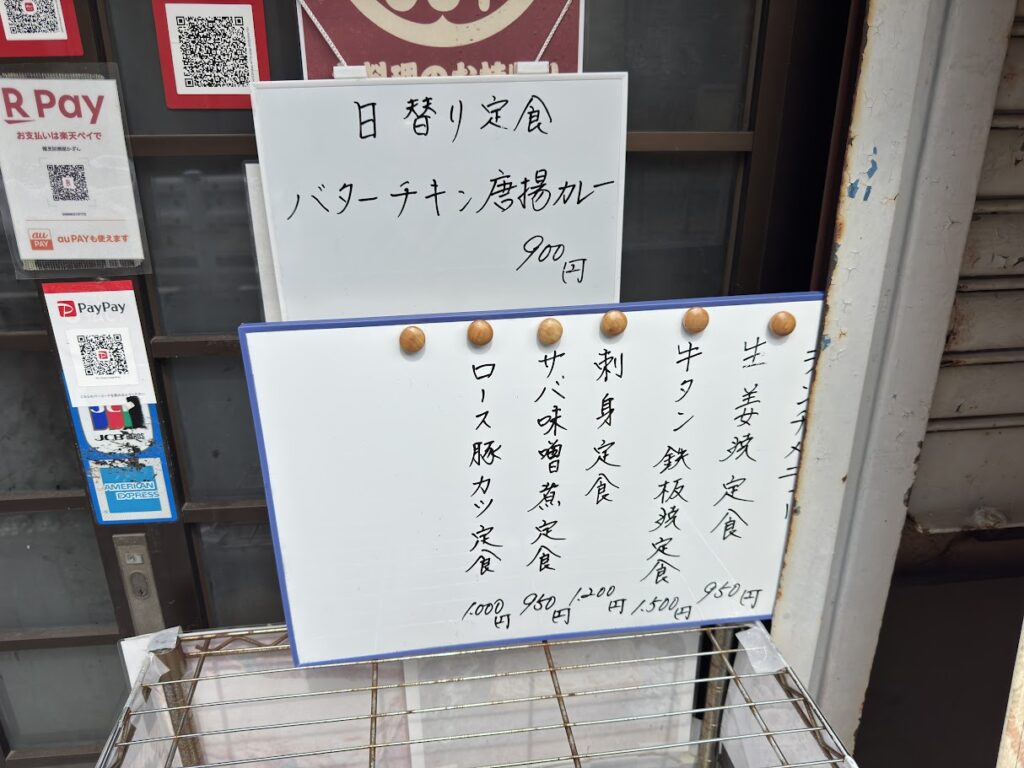 料理のお持帰り
R Pay
お支払いは楽天ペイで
au PAY
au PAYも使えます
PayPay
JCB
AMERICAN EXPRESS
日替り定食
バターチキン唐揚カレー
900円
ランチメニュー
生姜焼定食 950円
牛タン鉄板焼定食 1.500円
刺身定食 1.200円
サバ味噌煮定食 950円
ロース豚カツ定食 1.000円